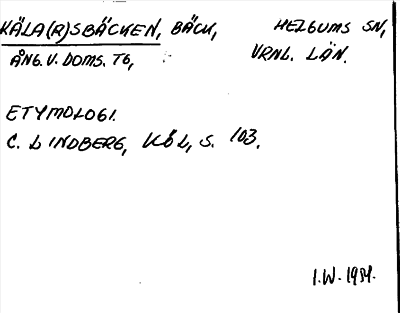 KÄLA(R)SBÄCKEN, BÄCK, HELGUMS SN,
ÅNG. V. DOMS. TG, VRNL. LÄN.
ETYMOLOGI.
C. LINDBERG, KÖL, S. 103.
I.W. 1984.